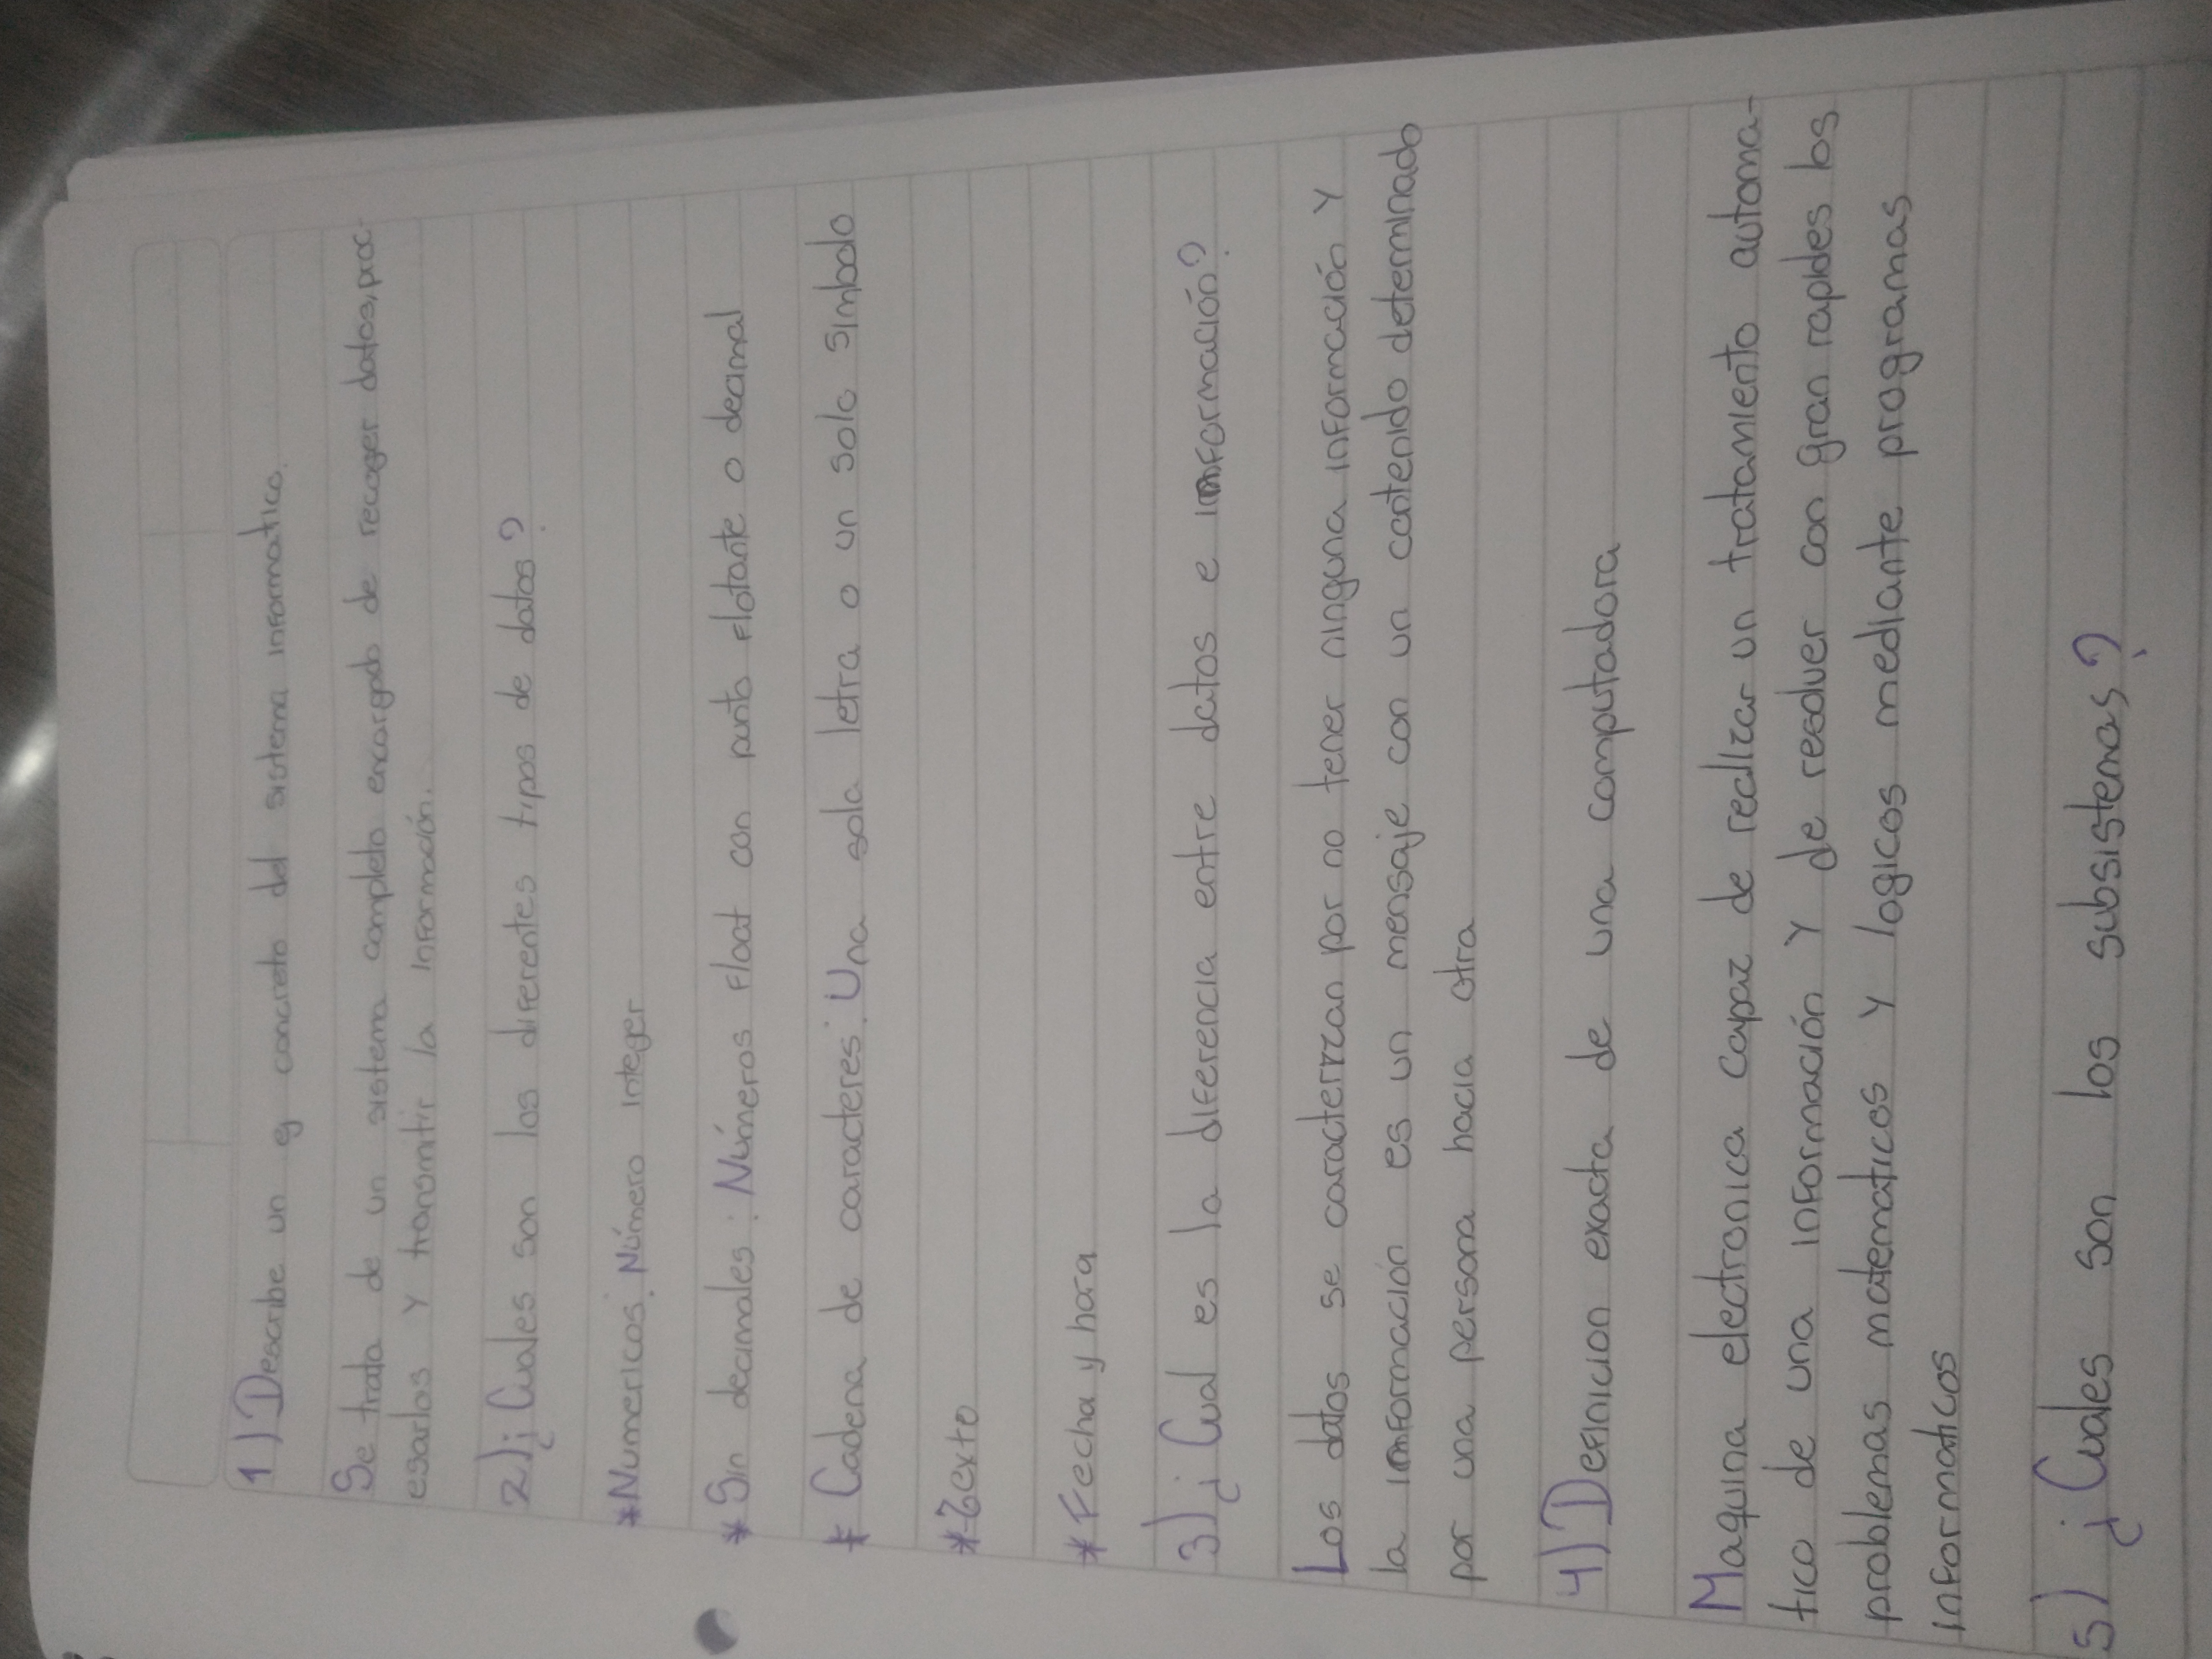 1) Describe un ej concreto del sistema informatico.
Se trata de un sistema completo encargado de recoger datos, proc-
esarlos y transmitir la información.
2) ¿Cuales son los diferentes tipos de datos?
*Numericos: Número integer
* Sin decimales: Números Float con punto flotante o decimal
* Cadena de caracteres: Una sola letra o un solo simbolo
*Texto
* Fecha y hora
3) ¿Cual es la diferencia entre datos e información?
Los datos se caracterizan por no tener ninguna información y
la información es un mensaje con un contenido determinado
por una persona hacia otra
4) Definicion exacta de una computadora
Maquina electronica capaz de realizar un tratamiento automa-
tico de una información y de resolver con gran rapides los
problemas matematicos y logicos mediante programas
informaticos
5) ¿Cuales son los subsistemas?